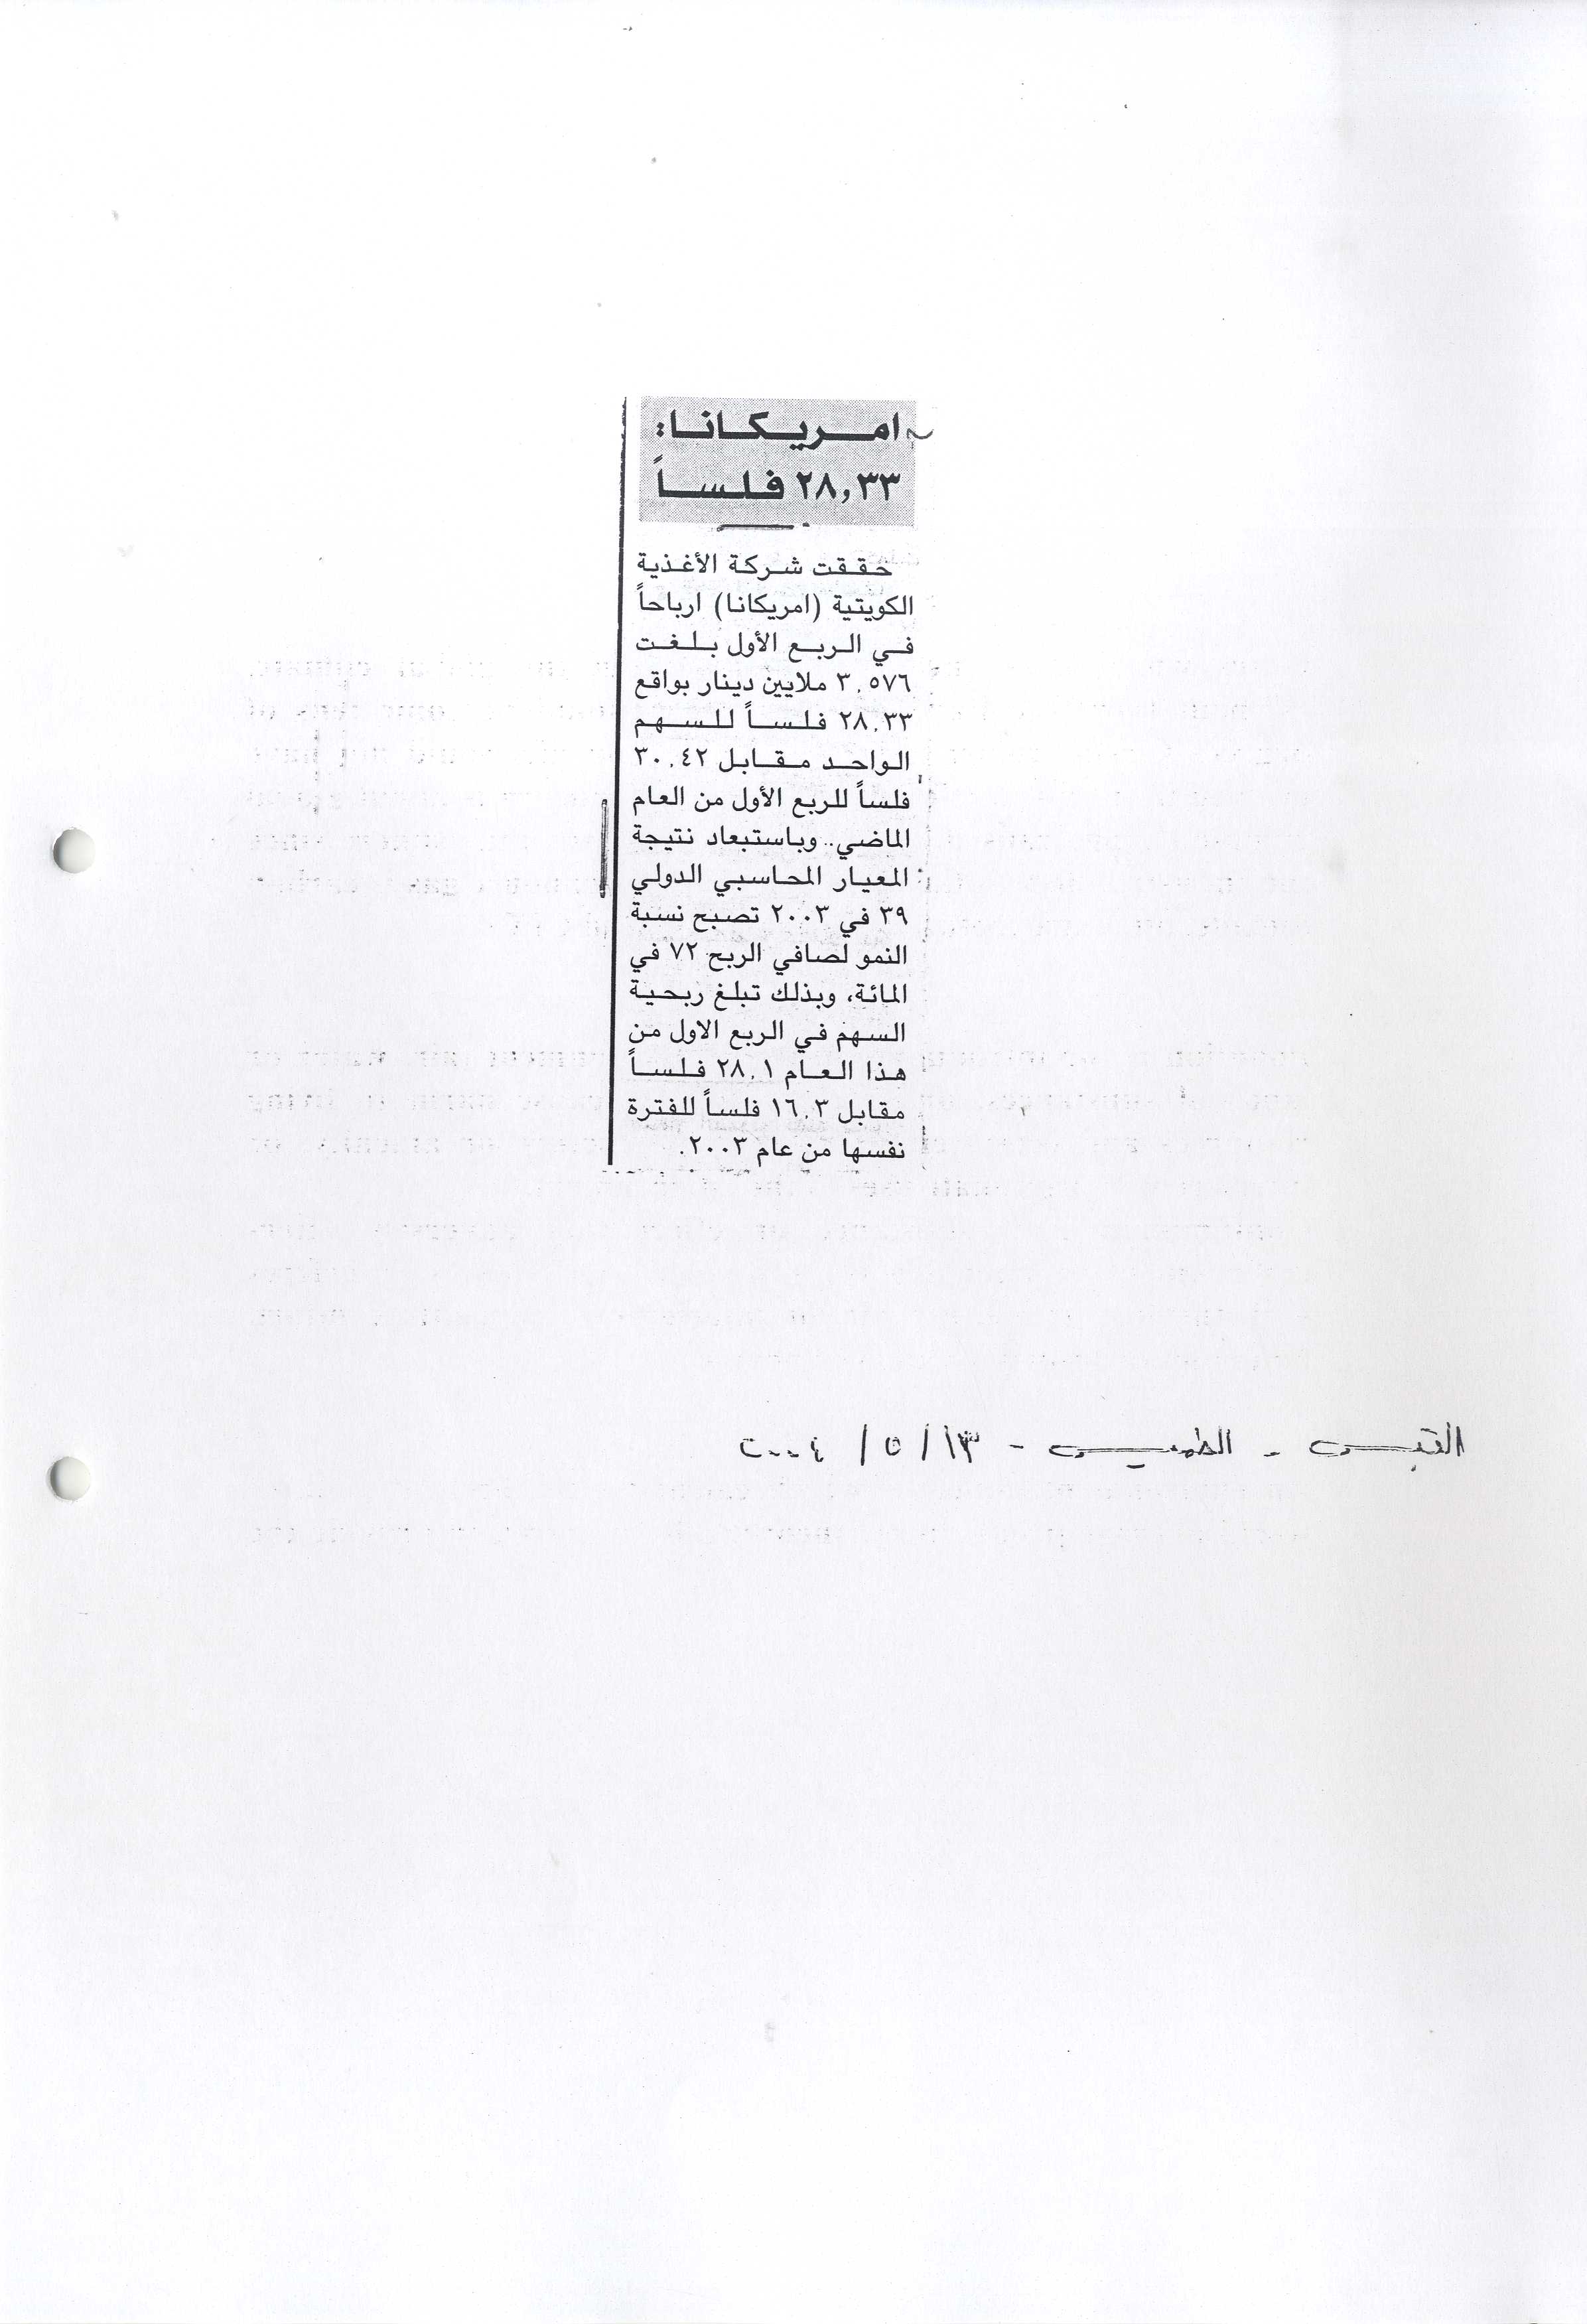 امريكانا:
٢٨,٣٣ فلساً
حققت شركة الأغذية
الكويتية (امريكانا) ارباحاً
في الربع الأول بلغت
٣.٥٧٦ ملايين دينار بواقع
٢٨.٣٣ فلساً للسهم
الواحد مقابل ٣٠.٤٢
فلساً للربع الأول من العام
الماضي.. وباستبعاد نتيجة
المعيار المحاسبي الدولي
٣٩ في ٢٠٠٣ تصبح نسبة
النمو لصافي الربح ٧٢ في
المائة، وبذلك تبلغ ربحية
السهم في الربع الاول من
هذا العام ٢٨.١ فلساً
مقابل ١٦.٣ فلساً للفترة
نفسها من عام ٢٠٠٣.
القبس - الخميس - ١٣/ ٥/ ٢٠٠٤